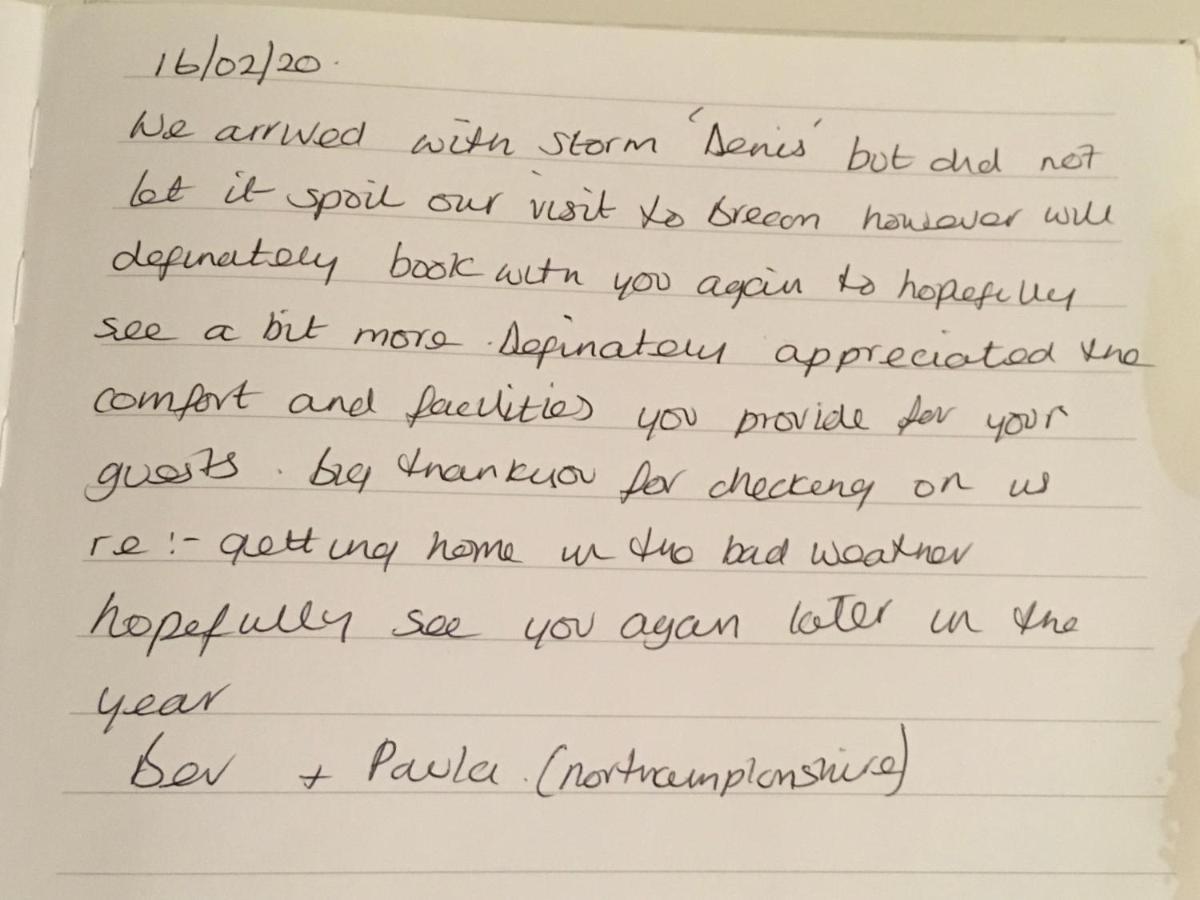 16/02/20.
We arrived with storm 'Denis' but did not
let it spoil our visit to Brecon however will
definately book with you again to hopefully
see a bit more. Definately appreciated the
comfort and facilities you provide for your
guests. big thankyou for checking on us
re:- getting home in the bad weather
hopefully see you again later in the
year
Bev + Paula. (northamptonshire)